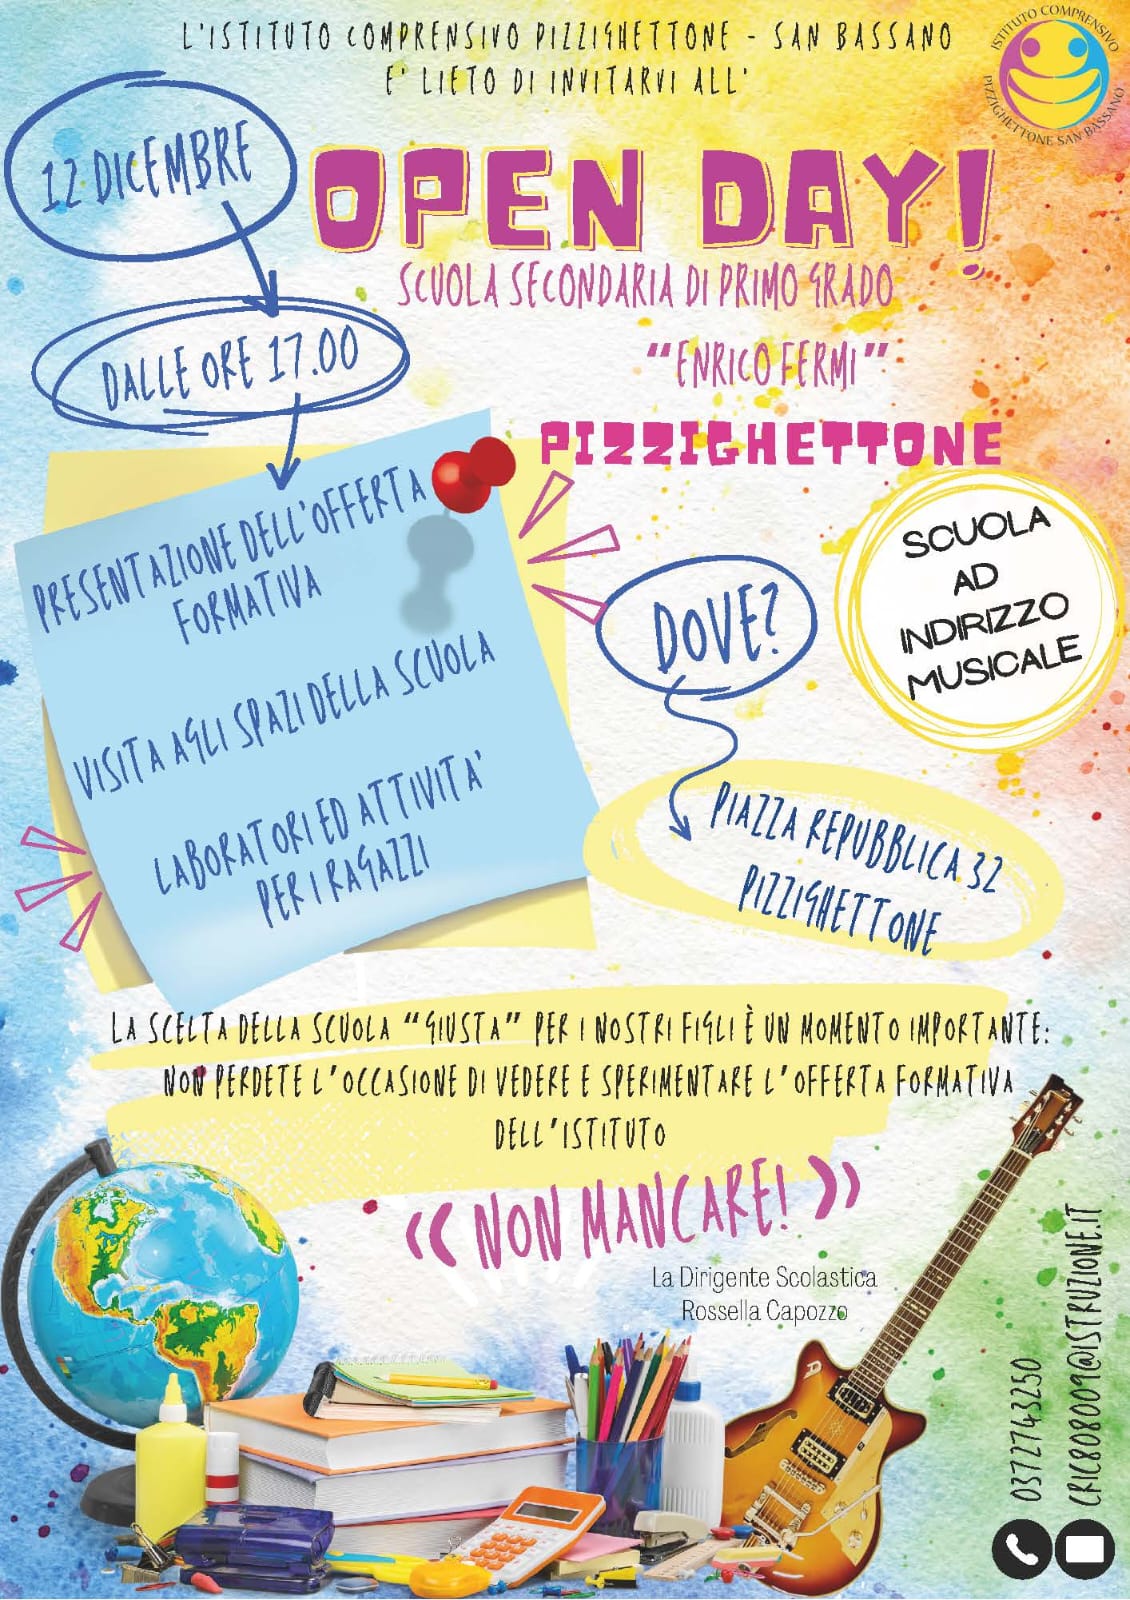 L'ISTITUTO COMPRENSIVO PIZZIGHETTONE - SAN BASSANO
E' LIETO DI INVITARVI ALL'
ISTITUTO COMPRENSIVO
PIZZIGHETTONE SAN BASSANO
12 DICEMBRE
OPEN DAY!
SCUOLA SECONDARIA DI PRIMO GRADO
DALLE ORE 17.00
"ENRICO FERMI"
PIZZIGHETTONE
PRESENTAZIONE DELL'OFFERTA
FORMATIVA
VISITA AGLI SPAZI DELLA SCUOLA
LABORATORI ED ATTIVITA'
PER I RAGAZZI
SCUOLA
AD
INDIRIZZO
MUSICALE
DOVE?
PIAZZA REPUBBLICA 32
PIZZIGHETTONE
LA SCELTA DELLA SCUOLA "GIUSTA" PER I NOSTRI FIGLI È UN MOMENTO IMPORTANTE:
NON PERDETE L'OCCASIONE DI VEDERE E SPERIMENTARE L'OFFERTA FORMATIVA
DELL'ISTITUTO
« NON MANCARE! »
La Dirigente Scolastica
Rossella Capozzo
0372743250
CRIC808009@ISTRUZIONE.IT